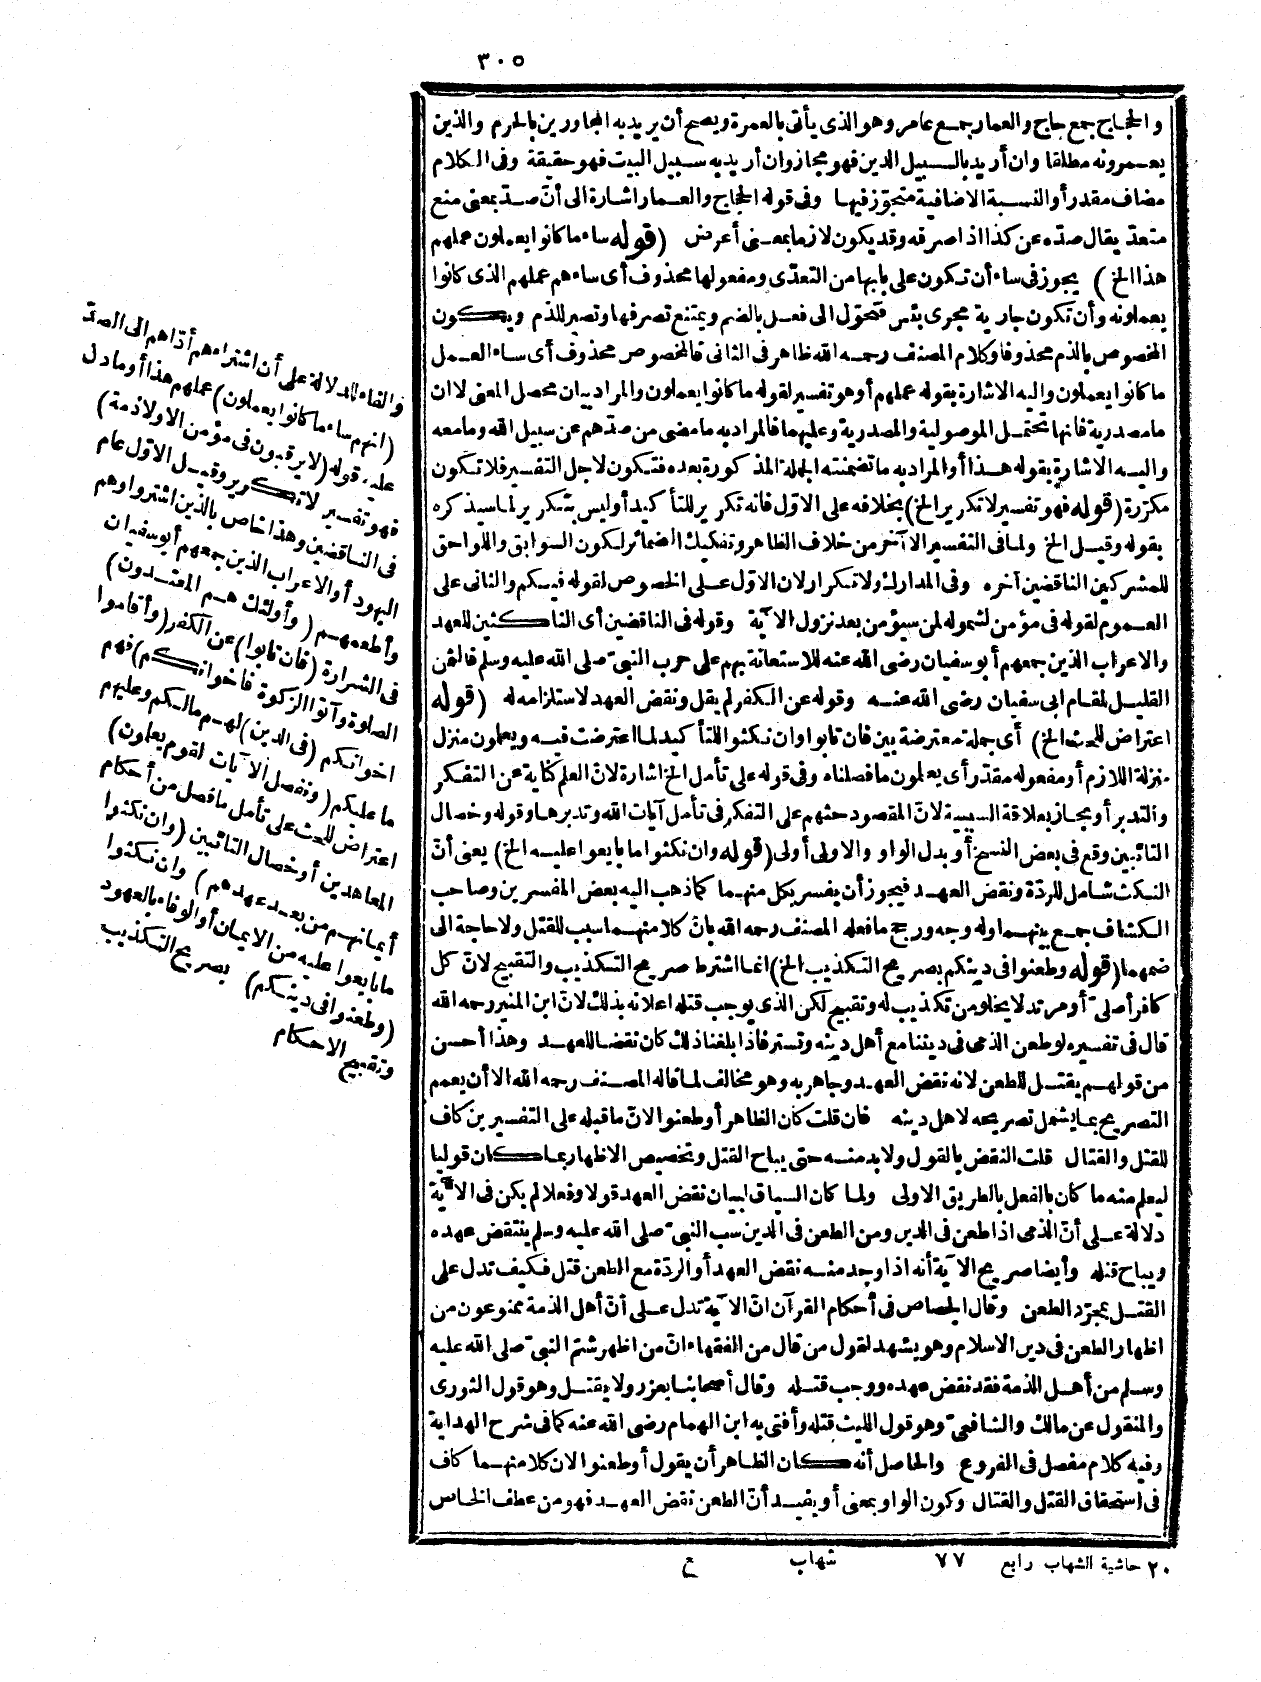 ٣٠٥
والحجاج جمع حاج والعمار جمع عامر وهو الذى يأتى بالعمرة ويصح أن يريد به المجاورين بالحرم والذين
يعمرونه مطلقا وان أريد بالسبيل الدين فهو مجاز وان أريد به سبيل البيت فهو حقيقة وفى الكلام
مضاف مقدر أو النسبة الاضافية متجوّز فيها وفى قوله الحجاج والعمار اشارة الى أنّ صدّ بمعنى منع
متعدّ يقال صدّه عن كذا اذا صرفه وقد يكون لازما بمعنى أعرض (قوله ساء ما كانوا يعملون عملهم
هذا الخ) يجوز فى ساء أن تكون على بابها من التعدّى ومفعولها محذوف أى ساءهم عملهم الذى كانوا
يعملونه وأن تكون جارية مجرى بئس فتحوّل الى فعل بالضم ويمتنع تصرفها وتصير للذم ويكون
المخصوص بالذم محذوفا وكلام المصنف رحمه الله ظاهر فى الثانى فالمخصوص محذوف أى ساء العمل
ما كانوا يعملون واليه الاشارة بقوله عملهم أو هو تفسير لقوله ما كانوا يعملون والمراد بيان محصل المعنى لا ان
ما مصدرية فانها تحتمل الموصولية والمصدرية وعليهما فالمراد به ما مضى من صدّهم عن سبيل الله وما معه
واليه الاشارة بقوله هذا أو المراد به ما تضمنته الجملة المذكورة بعده فتكون لاجل التفسير فلا تكون
مكرّرة (قوله فهو تفسير لا تكرير الخ) بخلافه على الاوّل فانه تكرير للتأكيد أو ليس بتكرير لما سيذكره
بقوله وقيل الخ ولما فى التفسير الآخر من خلاف الظاهر وتفكيك الضمائر لكون السوابق واللواحق
للمشركين الناقضين آخره وفى المدارك ولا تكرار لان الاوّل على الخصوص لقوله فيكم والثانى على
العموم لقوله فى مؤمن لشموله لمن سيؤمن بعد نزول الآية وقوله فى الناقضين أى الناكثين للعهد
والاعراب الذين جمعهم أبو سفيان رضى الله عنه للاستعانة بهم على حرب النبىّ صلى الله عليه وسلم فالثمن
القليل لمقام ابى سفيان رضى الله عنه وقوله عن الكفر لم يقل ونقض العهد لاستلزامه له (قوله
اعتراض للحث الخ) أى جملة معترضة بين فان تابوا وان نكثوا للتأكيد لما اعترضت فيه ويعلمون منزل
منزلة اللازم أو مفعوله مقدّر أى يعلمون ما فصلناه وفى قوله على تأمل الخ اشارة لانّ العلم كناية عن التفكر
والتدبر أو مجاز بعلاقة السببية لانّ المقصود حثهم على التفكر فى تأمل آيات الله وتدبرها وقوله وخصال
التائبين وقع فى بعض النسخ أو بدل الواو والاولى أولى (قوله وان نكثوا ما بايعوا عليه الخ) يعنى أنّ
النكث شامل للردّة ونقض العهد فيجوز أن يفسر بكل منهما كما ذهب اليه بعض المفسرين وصاحب
الكشاف جمع بينهما وله وجه ورجح ما فعله المصنف رحمه الله بانّ كلا منهما سبب للقتل ولا حاجة الى
ضمهما (قوله وطعنوا فى دينكم بصريح التكذيب الخ) انما اشترط صريح التكذيب والتقبيح لانّ كل
كافر أصلىّ أو مرتد لا يخلو من تكذيب له وتقبيح لكن الذى يوجب قتله اعلانه بذلك لانّ ابن المنير رحمه الله
قال فى تفسيره لو طعن الذمى فى ديننا مع أهل دينه وتستر فاذا بلغنا ذلك كان نقضا للعهد وهذا أحسن
من قولهم يقتل للطعن لانه نقض العهد وجاهر به وهو مخالف لما قاله المصنف رحمه الله الا أن يعمم
التصريح بما يشمل تصريحه لاهل دينه فان قلت كان الظاهر أو طعنوا لانّ ما قبله على التفسيرين كاف
للقتل والقتال قلت النقض بالقول ولا بد منه حتى يباح القتل وتخصيص الاظهار بما كان قوليا
ليعلم منه ما كان بالفعل بالطريق الاولى ولما كان السياق لبيان نقض العهد قولا وفعلا لم يكن فى الآية
دلالة على أنّ الذمى اذا طعن فى الدين ومن الطعن فى الدين سب النبىّ صلى الله عليه وسلم ينتقض عهده
ويباح قتله وأيضا صريح الآية أنه اذا وجد منه نقض العهد أو الردّة مع الطعن قتل فكيف تدل على
القتل بمجرّد الطعن وقال الجصاص فى أحكام القرآن انّ الآية تدل على أنّ أهل الذمة ممنوعون من
اظهار الطعن فى دين الاسلام وهو يشهد لقول من قال من الفقهاء انّ من اظهر شتم النبىّ صلى الله عليه
وسلم من أهل الذمة فقد نقض عهده ووجب قتله وقال أصحابنا يعزر ولا يقتل وهو قول الثورى
والمنقول عن مالك والشافعىّ وهو قول الليث قتله وأفتى به ابن الهمام رضى الله عنه كما فى شرح الهداية
وفيه كلام مفصل فى الفروع والحاصل أنه كان الظاهر أن يقول أو طعنوا لان كلا منهما كاف
فى استحقاق القتل والقتال وكون الواو بمعنى أو يفيد أنّ الطعن نقض العهد فهو من عطف الخاص
والفاء للدلالة على أن اشتراءهم أذاهم الى الصدّ
(انهم ساء ما كانوا يعملون) عملهم هذا أو ما دل
عليه قوله (لا يرقبون فى مؤمن الا ولا ذمة)
فهو تفسير لا تكرير وقيل الاوّل عام
فى الناقضين وهذا خاص بالذين اشتروا وهم
اليهود أو الاعراب الذين جمعهم أبو سفيان
وأطعمهم (وأولئك هم المعتدون)
فى الشرارة (فان تابوا) عن الكفر (وأقاموا
الصلوة وآتوا الزكوة فاخوانكم) فهم
اخوانكم (فى الدين) لهم مالكم وعليهم
ما عليكم (ونفصل الآيات لقوم يعلمون)
اعتراض للحث على تأمل ما فصل من أحكام
المعاهدين أو خصال التائبين (وان نكثوا
أيمانهم من بعد عهدهم) وان نكثوا
ما بايعوا عليه من الايمان أو الوفاء بالعهود
(وطعنوا فى دينكم) بصريح التكذيب
وتقبيح الاحكام
٢٠ حاشية الشهاب رابع ٧٧ شهاب ع